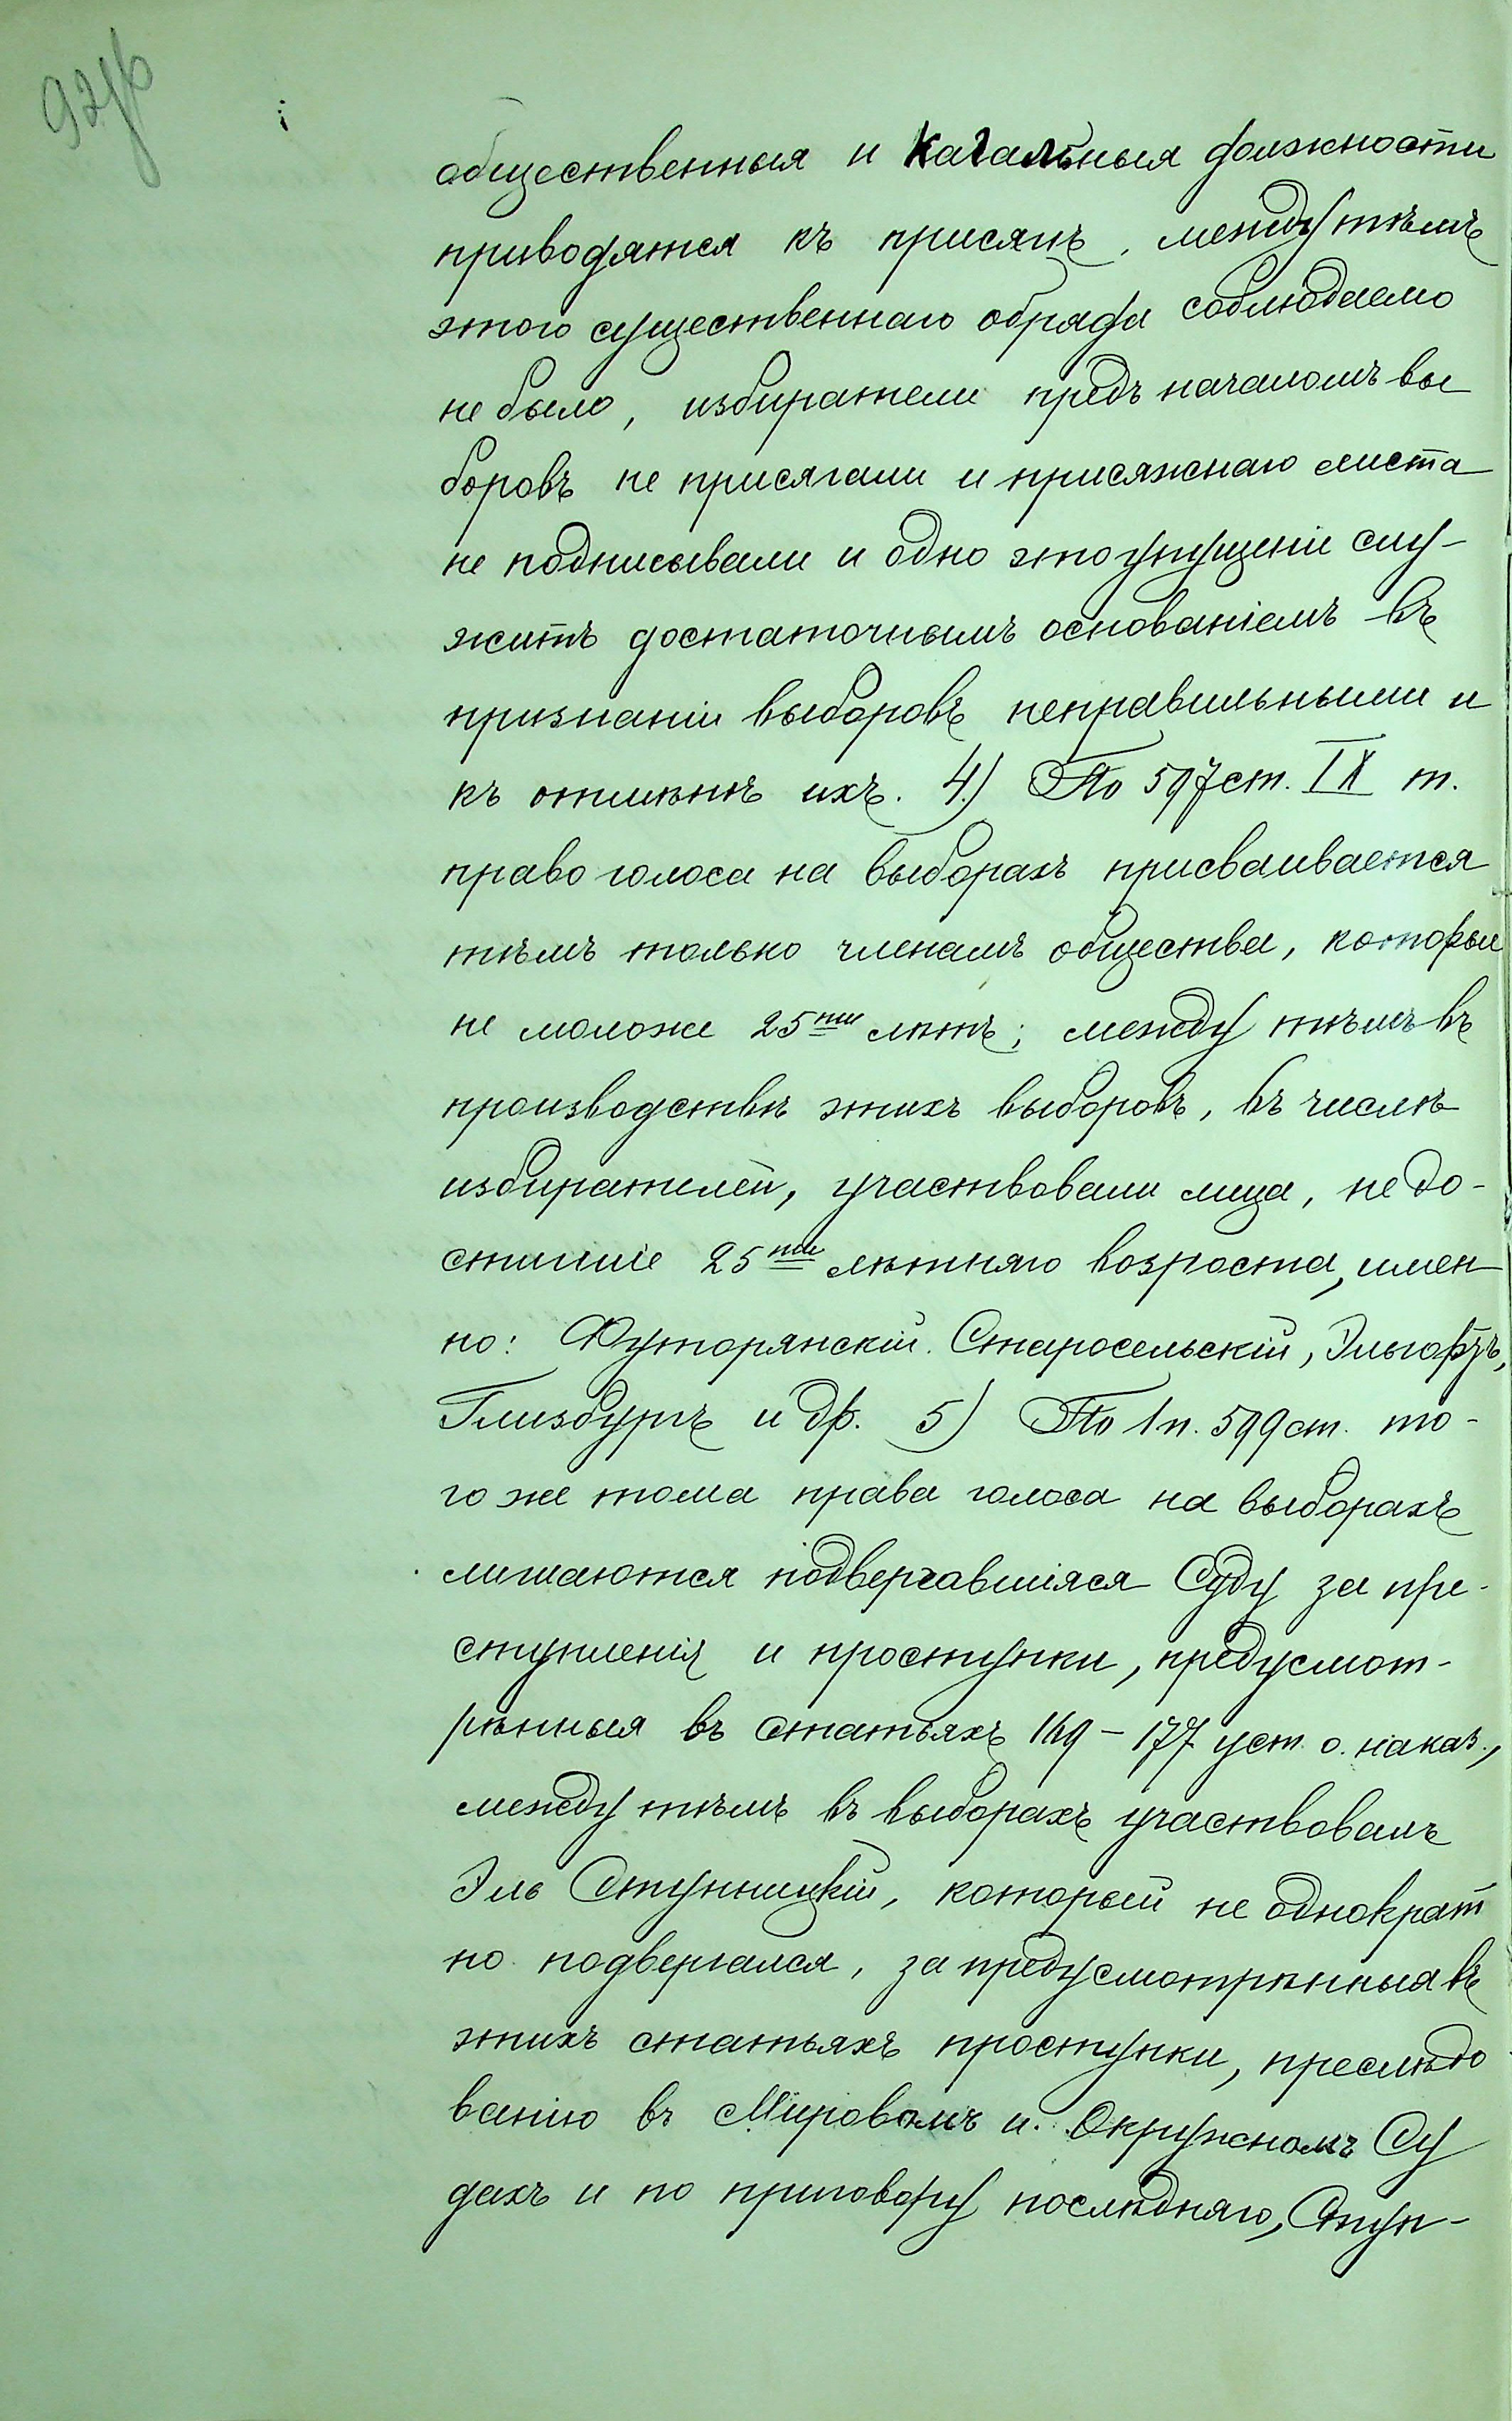 92об
общественныя и Кагальныя должности
приводятся къ присягѣ, между тѣмъ
этого существеннаго обряда соблюдаемо
не было, избиратели предъ началомъ вы
боровъ не присягали и присяжнаго листа
не подписывали и одно это упущеніе слу-
житъ достаточнымъ основаніемъ въ
признаніи выборовъ неправильными и
къ отмѣнѣ ихъ. 4) По 597 ст. IX т.
право голоса на выборахъ присваивается
тѣмъ только членамъ общества, которые
не моложе 25ти лѣтъ; между тѣмъ въ
производствѣ этихъ выборовъ, въ числѣ
избирателей, участвовали лица, не до-
стигшіе 25ти лѣтняго возроста, имен
но: Футорянскій. Старосельскій, Эльгортъ,
Гинзбургъ и др. 5) По 1 п. 599 ст. то-
го же тома права голоса на выборахъ
лишаются подвергавшіяся Суду за пре-
ступленія и проступки, предусмот-
рѣнныя въ статьяхъ 169-177 уст. о. наказ.,
между тѣмъ въ выборахъ участвовалъ
Эль Ступницкій, который не однократ
но подвергался, за предусмотрѣнныя въ
этихъ статьяхъ проступки, преслѣдо
ванію въ Мировомъ и Окружномъ Су
дахъ и по приговору послѣдняго, Ступ-